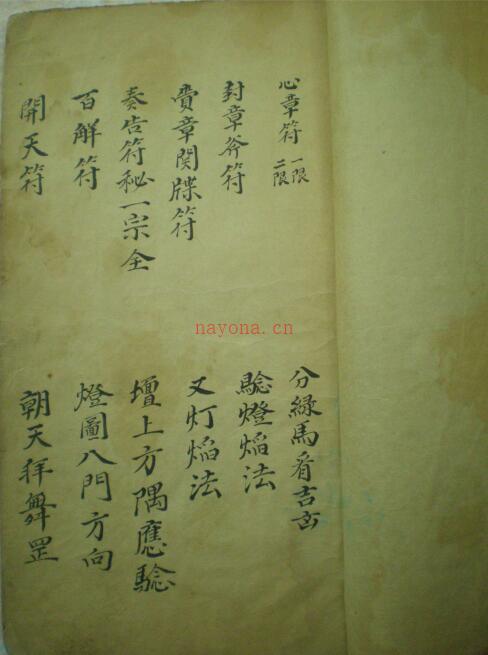 心章符 一限 二限
封章斧符
費章関牒符
奏告符秘一宗全
百解符
開天符
分緑馬看吉凶
騐燈焰法
又灯焰法
壇上方隅應騐
燈圖八門方向
朝天拜舞罡
nayona.cn